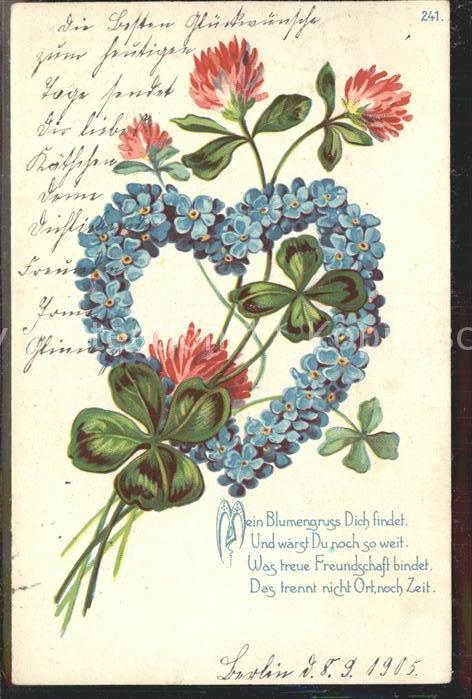 241.
Die Besten Glückwünsche
zum heutigen
Tage sendet
Dir liebe
Käthchen
Deine
Dich lie
Freun
Irm
Mein Blumengruss Dich findet,
Und wärst Du noch so weit.
Was treue Freundschaft bindet.
Das trennt nicht Ort, noch Zeit.
Berlin d. 8. 9. 1905.